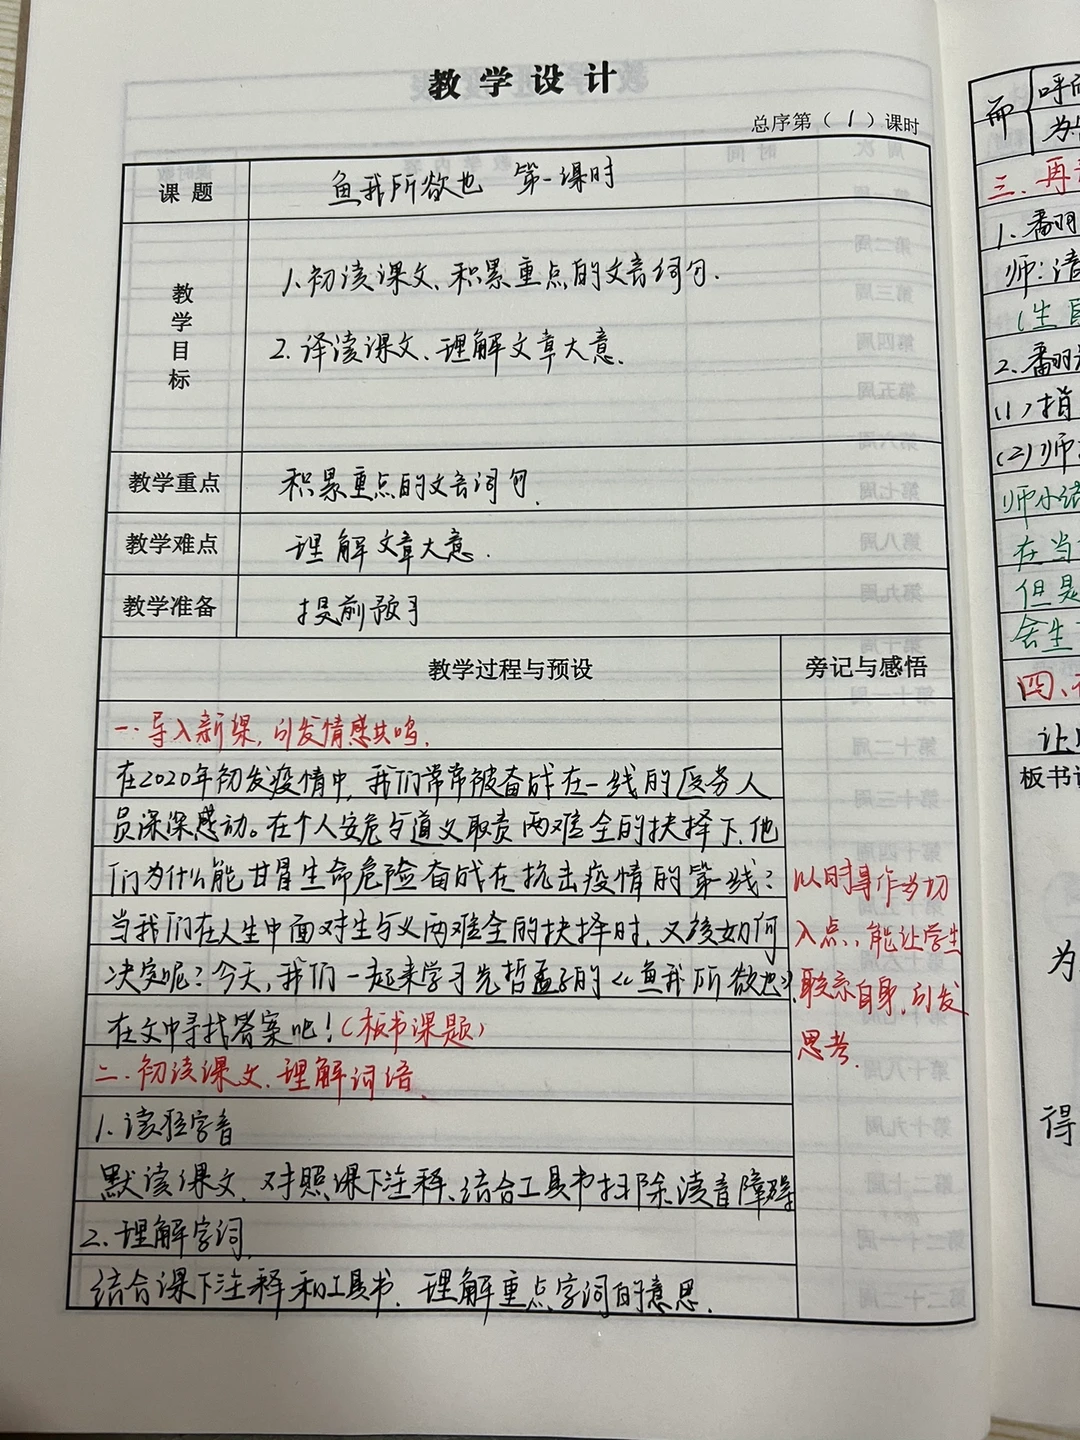 教学设计
总序第（1）课时
课题
鱼我所欲也 第一课时
教学目标
1.初读课文、积累重点的文言词句.
2.译读课文、理解文章大意.
教学重点
积累重点的文言词句.
教学难点
理解文章大意.
教学准备
提前预习
教学过程与预设
旁记与感悟
一.导入新课,引发情感共鸣.
在2020年初发疫情中,我们常常被奋战在一线的医务人
员深深感动。在个人安危与道义取责两难全的抉择下、他
们为什么能甘冒生命危险奋战在抗击疫情的第一线?
当我们在人生中面对生与义两难全的抉择时、又该如何
决定呢?今天,我们一起来学习先哲孟子的《鱼我所欲也》,
在文中寻找答案吧!(板书课题)
二.初读课文、理解词语.
1.读准字音
默读课文、对照课下注释、结合工具书扫除读音障碍
2.理解字词.
结合课下注释和工具书、理解重点字词的意思.
以时事作为切
入点,能让学生
联系自身,引发
思考.
而
呼
三.再
1.翻
师:请
(生
2.翻
(1)指
(2)师
师小结
在当
但是
舍生
四、
让
板书
为
得